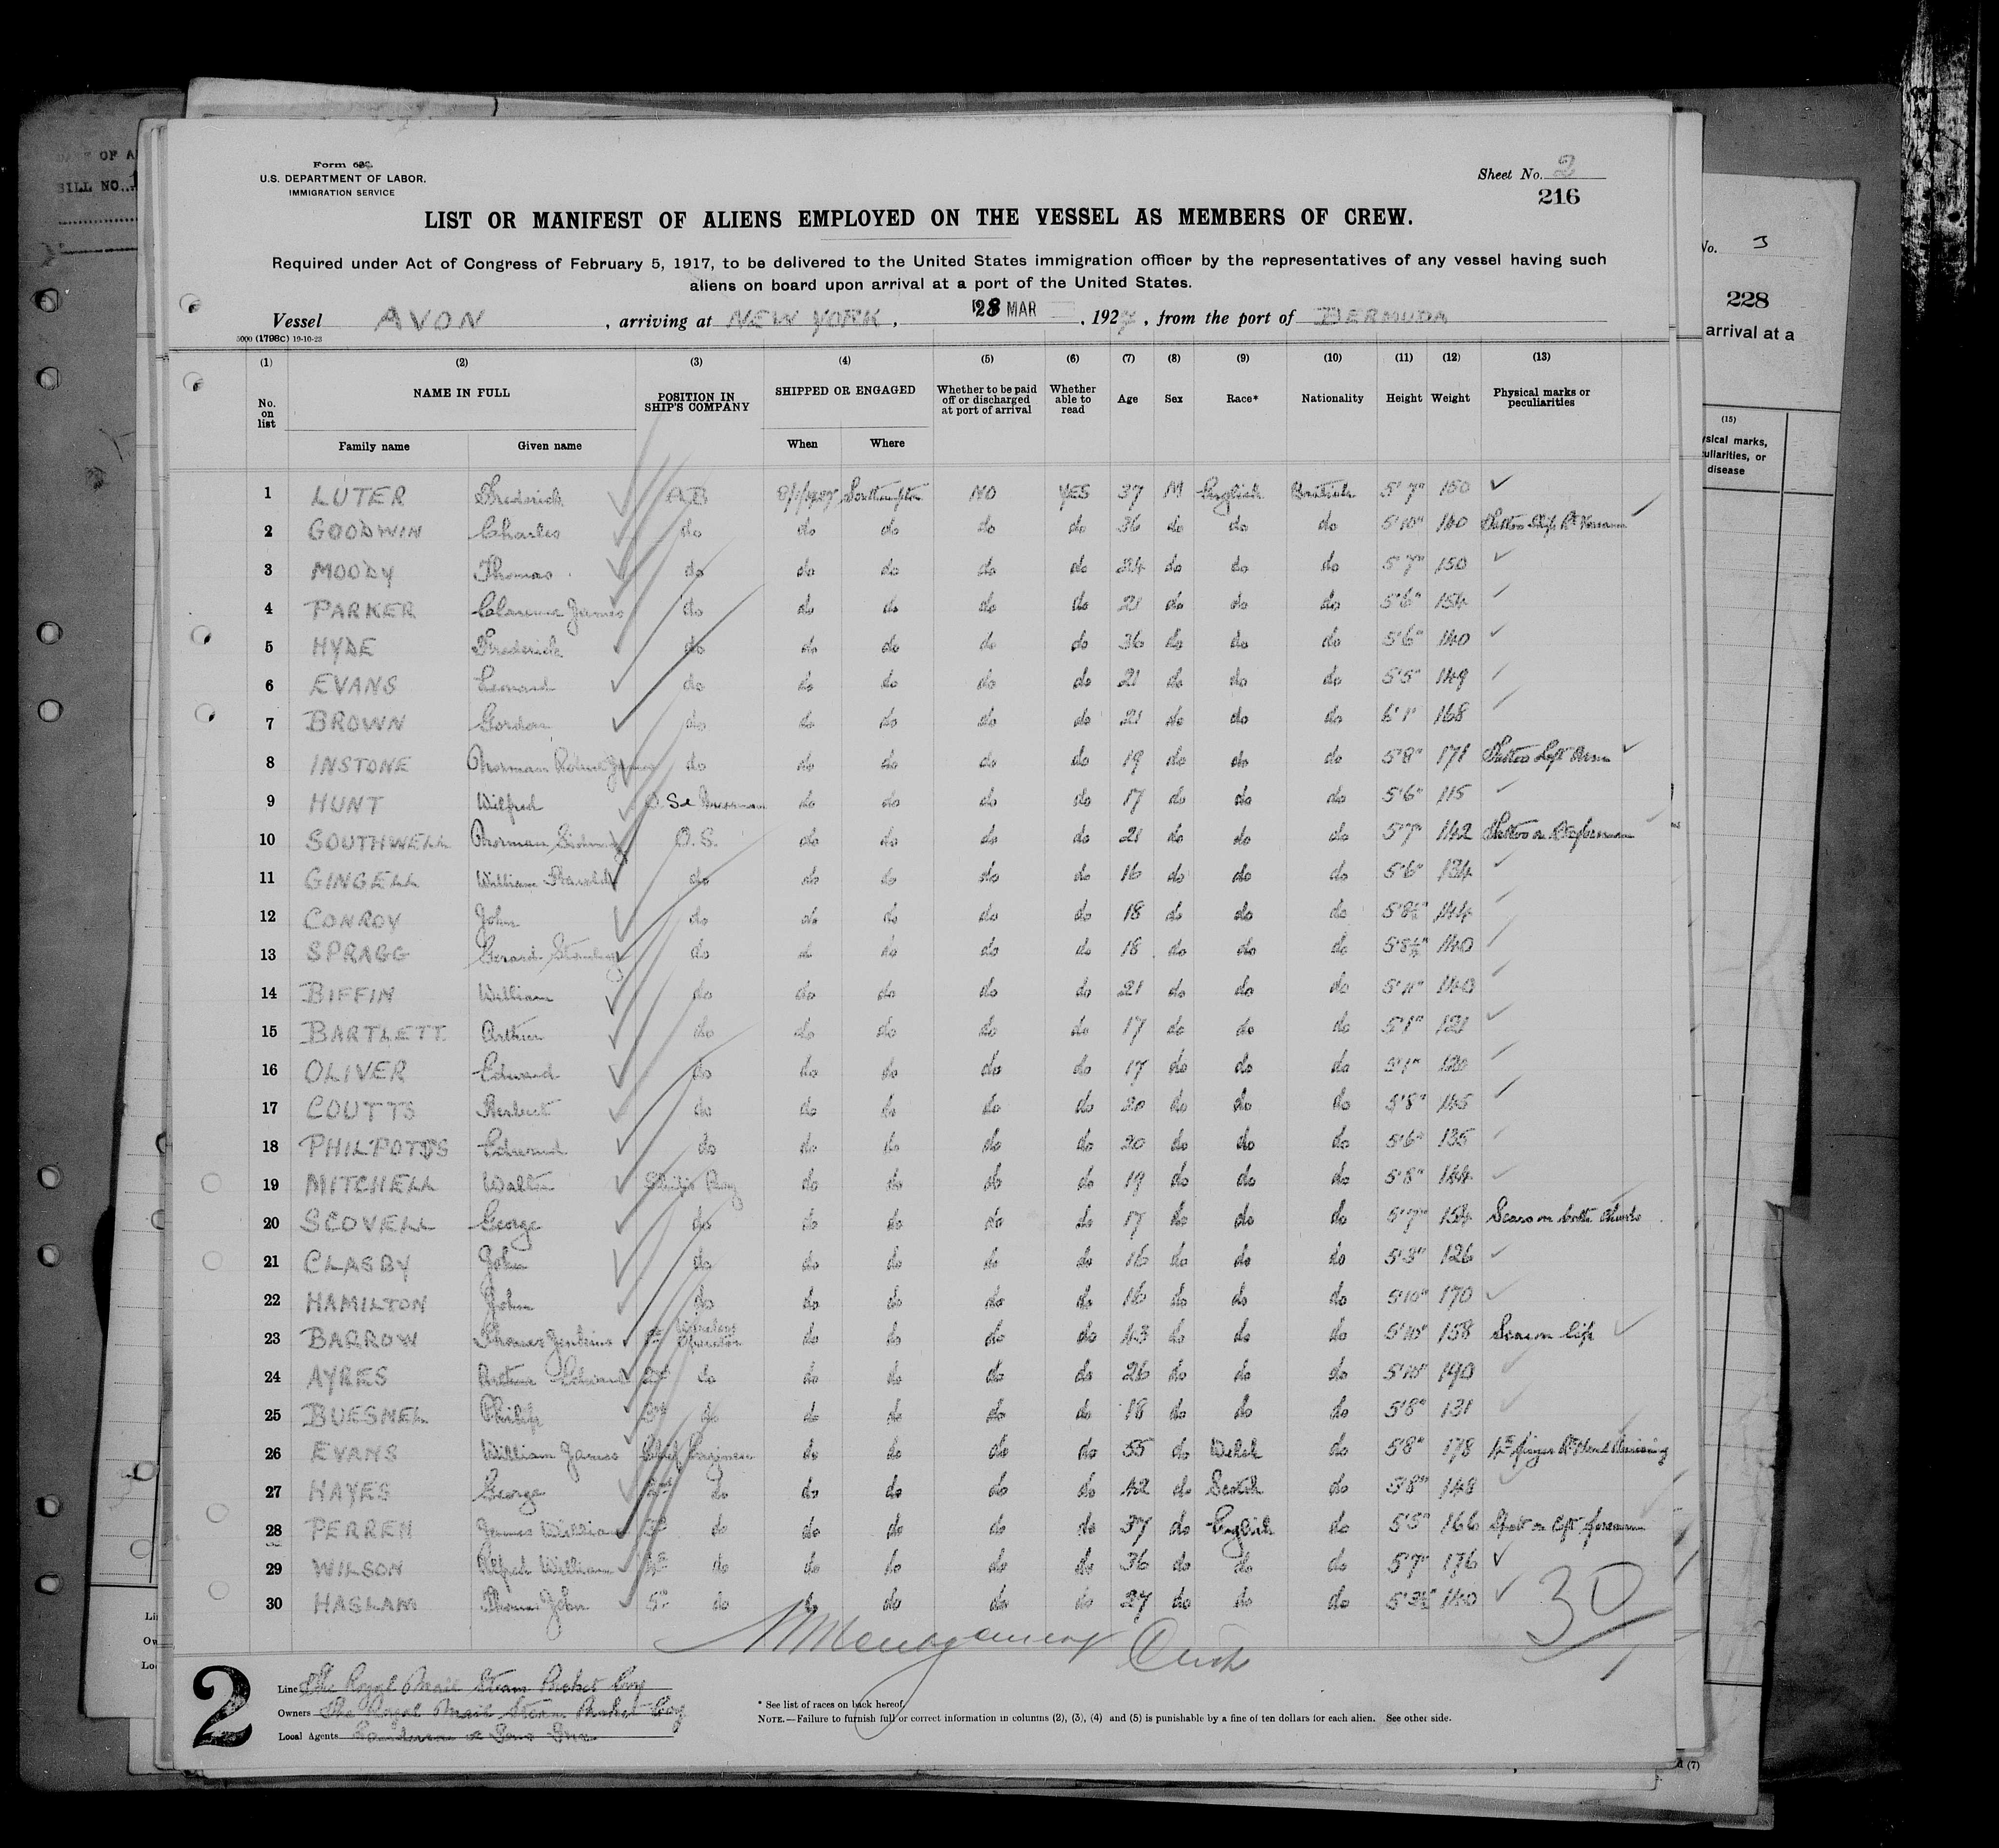 Form 692.
U.S. DEPARTMENT OF LABOR.
IMMIGRATION SERVICE
Sheet No. 2
216
LIST OR MANIFEST OF ALIENS EMPLOYED ON THE VESSEL AS MEMBERS OF CREW.
Required under Act of Congress of February 5, 1917, to be delivered to the United States immigration officer by the representatives of any vessel having such
aliens on board upon arrival at a port of the United States.
Vessel AVON, arriving at NEW YORK, 28 MAR, 1927, from the port of BERMUDA
5000 (1798C) 19-10-23
(1) (2) (3) (4) (5) (6) (7) (8) (9) (10) (11) (12) (13)
No. on list NAME IN FULL POSITION IN SHIP'S COMPANY SHIPPED OR ENGAGED Whether to be paid off or discharged at port of arrival Whether able to read Age Sex Race* Nationality Height Weight Physical marks or peculiarities
Family name Given name When Where
1 LUTER Frederick AB 8/1/1927 Southampton NO YES 37 M English British 5'7" 150
2 GOODWIN Charles do do do do do 36 do do do 5'10" 160 Tattoo
3 MOODY Thomas do do do do do 24 do do do 5'7" 150
4 PARKER Clarence James do do do do do 21 do do do 5'6" 154
5 HYDE Frederick do do do do do 36 do do do 5'6" 140
6 EVANS Leonard do do do do do 21 do do do 5'5" 149
7 BROWN Gordon do do do do do 21 do do do 6'1" 168
8 INSTONE Norman Robert James do do do do do 19 do do do 5'8" 171 Tattoo Left Arm
9 HUNT Wilfred do do do do 17 do do do 5'6" 115
10 SOUTHWELL Norman Sidney O.S. do do do do 21 do do do 5'7" 142 Tattoo on Rt forearm
11 GINGELL William Harold do do do do do 16 do do do 5'6" 134
12 CONROY John do do do do do 18 do do do 5'8½" 144
13 SPRAGG Gerard Stanley do do do do do 18 do do do 5'8½" 140
14 BIFFIN William do do do do do 21 do do do 5'11" 140
15 BARTLETT Arthur do do do do do 17 do do do 5'1" 121
16 OLIVER Edward do do do do do 17 do do do 5'1" 120
17 COUTTS Herbert do do do do do 20 do do do 5'8" 145
18 PHILPOTTS Edward do do do do do 20 do do do 5'6" 135
19 MITCHELL Walter Ship's Boy do do do do 19 do do do 5'8" 144
20 SCOVELL George do do do do do 17 do do do 5'7" 154 Scars on both
21 CLASBY John do do do do do 16 do do do 5'3" 126
22 HAMILTON John do do do do do 16 do do do 5'10" 170
23 BARROW Thomas Jenkins 1st Wireless Operator do do do do 43 do do do 5'10" 158 Scar on lip
24 AYRES Arthur Edward 2nd do do do do do 26 do do do 5'10" 190
25 BUESNEL Philip 3rd do do do do do 18 do do do 5'8" 131
26 EVANS William James Chief Engineer do do do do 55 do Welsh do 5'8" 178 4th finger Rt Hand Missing
27 HAYES George 2nd do do do do do 42 do Scotch do 5'8" 148
28 PERREN James William 3rd do do do do do 37 do English do 5'5" 166 on left forearm
29 WILSON Alfred William 4th do do do do do 36 do do do 5'7" 176
30 HASLAM Thomas John 5th do do do do do 27 do do do 5'3½" 140
30
2
Line The Royal Mail Steam Packet Coy
Owners The Royal Mail Steam Packet Coy
Local Agents Sanderson & Sons Inc
* See list of races on back hereof.
NOTE.—Failure to furnish full or correct information in columns (2), (3), (4) and (5) is punishable by a fine of ten dollars for each alien. See other side.
BILL NO.
No. 3
228
arrival at a
(15)
disease